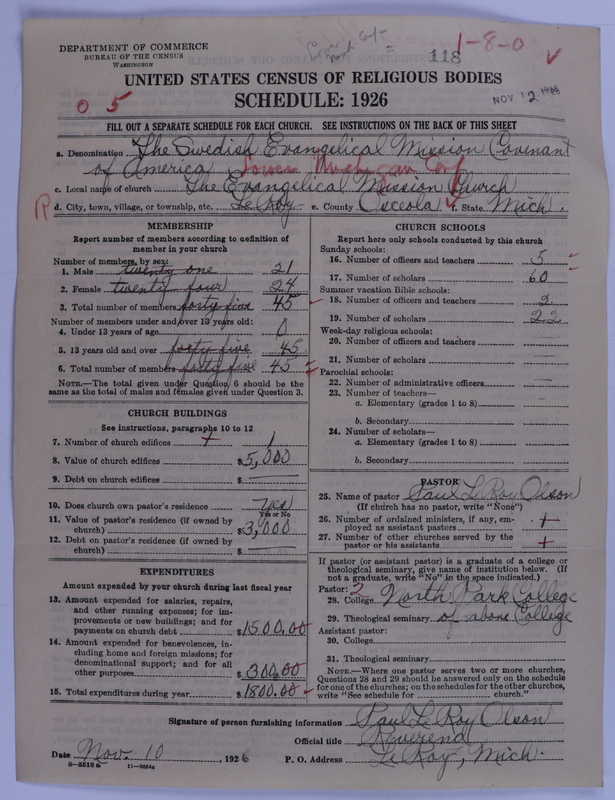 DEPARTMENT OF COMMERCE
BUREAU OF THE CENSUS
WASHINGTON
118
1-8-0
UNITED STATES CENSUS OF RELIGIOUS BODIES
SCHEDULE: 1926
0 5
NOV 12 1926
FILL OUT A SEPARATE SCHEDULE FOR EACH CHURCH. SEE INSTRUCTIONS ON THE BACK OF THIS SHEET
a. Denomination The Swedish Evangelical Mission Covenant
of America Lower Michigan Conf
c. Local name of church The Evangelical Mission Church
R
d. City, town, village, or township, etc. Le Roy e. County Osceola f. State Mich.
MEMBERSHIP
Report number of members according to definition of
member in your church
Number of members, by sex:
1. Male twenty one 21
2. Female twenty four 24
3. Total number of members forty five 45
Number of members under and over 13 years old:
4. Under 13 years of age 0
5. 13 years old and over forty five 45
6. Total number of members forty five 45
NOTE.—The total given under Question 6 should be the
same as the total of males and females given under Question 3.
CHURCH BUILDINGS
See instructions, paragraphs 10 to 12
7. Number of church edifices + 1
8. Value of church edifices $5,000
9. Debt on church edifices $ —
10. Does church own pastor's residence Yes
Yes or No
11. Value of pastor's residence (if owned by
church) $3,000
12. Debt on pastor's residence (if owned by
church) $ —
EXPENDITURES
Amount expended by your church during last fiscal year
13. Amount expended for salaries, repairs,
and other running expenses; for im-
provements or new buildings; and for
payments on church debt $1500.00
14. Amount expended for benevolences, in-
cluding home and foreign missions; for
denominational support; and for all
other purposes $300.00
15. Total expenditures during year $1800.00
CHURCH SCHOOLS
Report here only schools conducted by this church
Sunday schools:
16. Number of officers and teachers 5
17. Number of scholars 60
Summer vacation Bible schools:
18. Number of officers and teachers 2
19. Number of scholars 22
Week-day religious schools:
20. Number of officers and teachers —
21. Number of scholars —
Parochial schools:
22. Number of administrative officers —
23. Number of teachers—
a. Elementary (grades 1 to 8)
b. Secondary
24. Number of scholars—
a. Elementary (grades 1 to 8)
b. Secondary
PASTOR
25. Name of pastor Paul Le Roy Olson
(If church has no pastor, write "None")
26. Number of ordained ministers, if any, em-
ployed as assistant pastors +
27. Number of other churches served by the
pastor or his assistants +
If pastor (or assistant pastor) is a graduate of a college or
theological seminary, give name of institution below. (If
not a graduate, write "No" in the space indicated.)
Pastor: 2
28. College North Park College
29. Theological seminary of above College
Assistant pastor:
30. College
31. Theological seminary
NOTE.—Where one pastor serves two or more churches,
Questions 28 and 29 should be answered only on the schedule
for one of the churches; on the schedules for the other churches,
write "See schedule for ........ church."
Signature of person furnishing information Paul Le Roy Olson
Official title Reverend
Date Nov. 10, 1926 P. O. Address Le Roy, Mich.
8-5518a